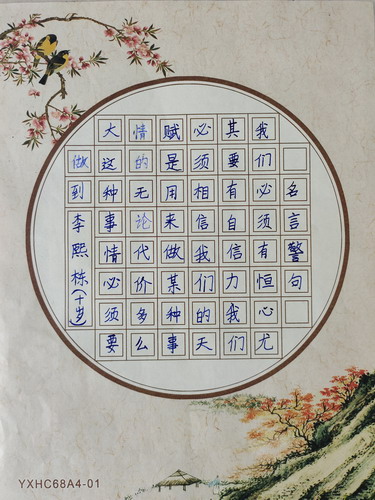 名言警句
我们必须有恒心尤
其要有自信力我们
必须相信我们的天
赋是用来做某种事
情的无论代价多么
大这种事情必须要
做到李熙栋(十岁)
YXHC68A4-01